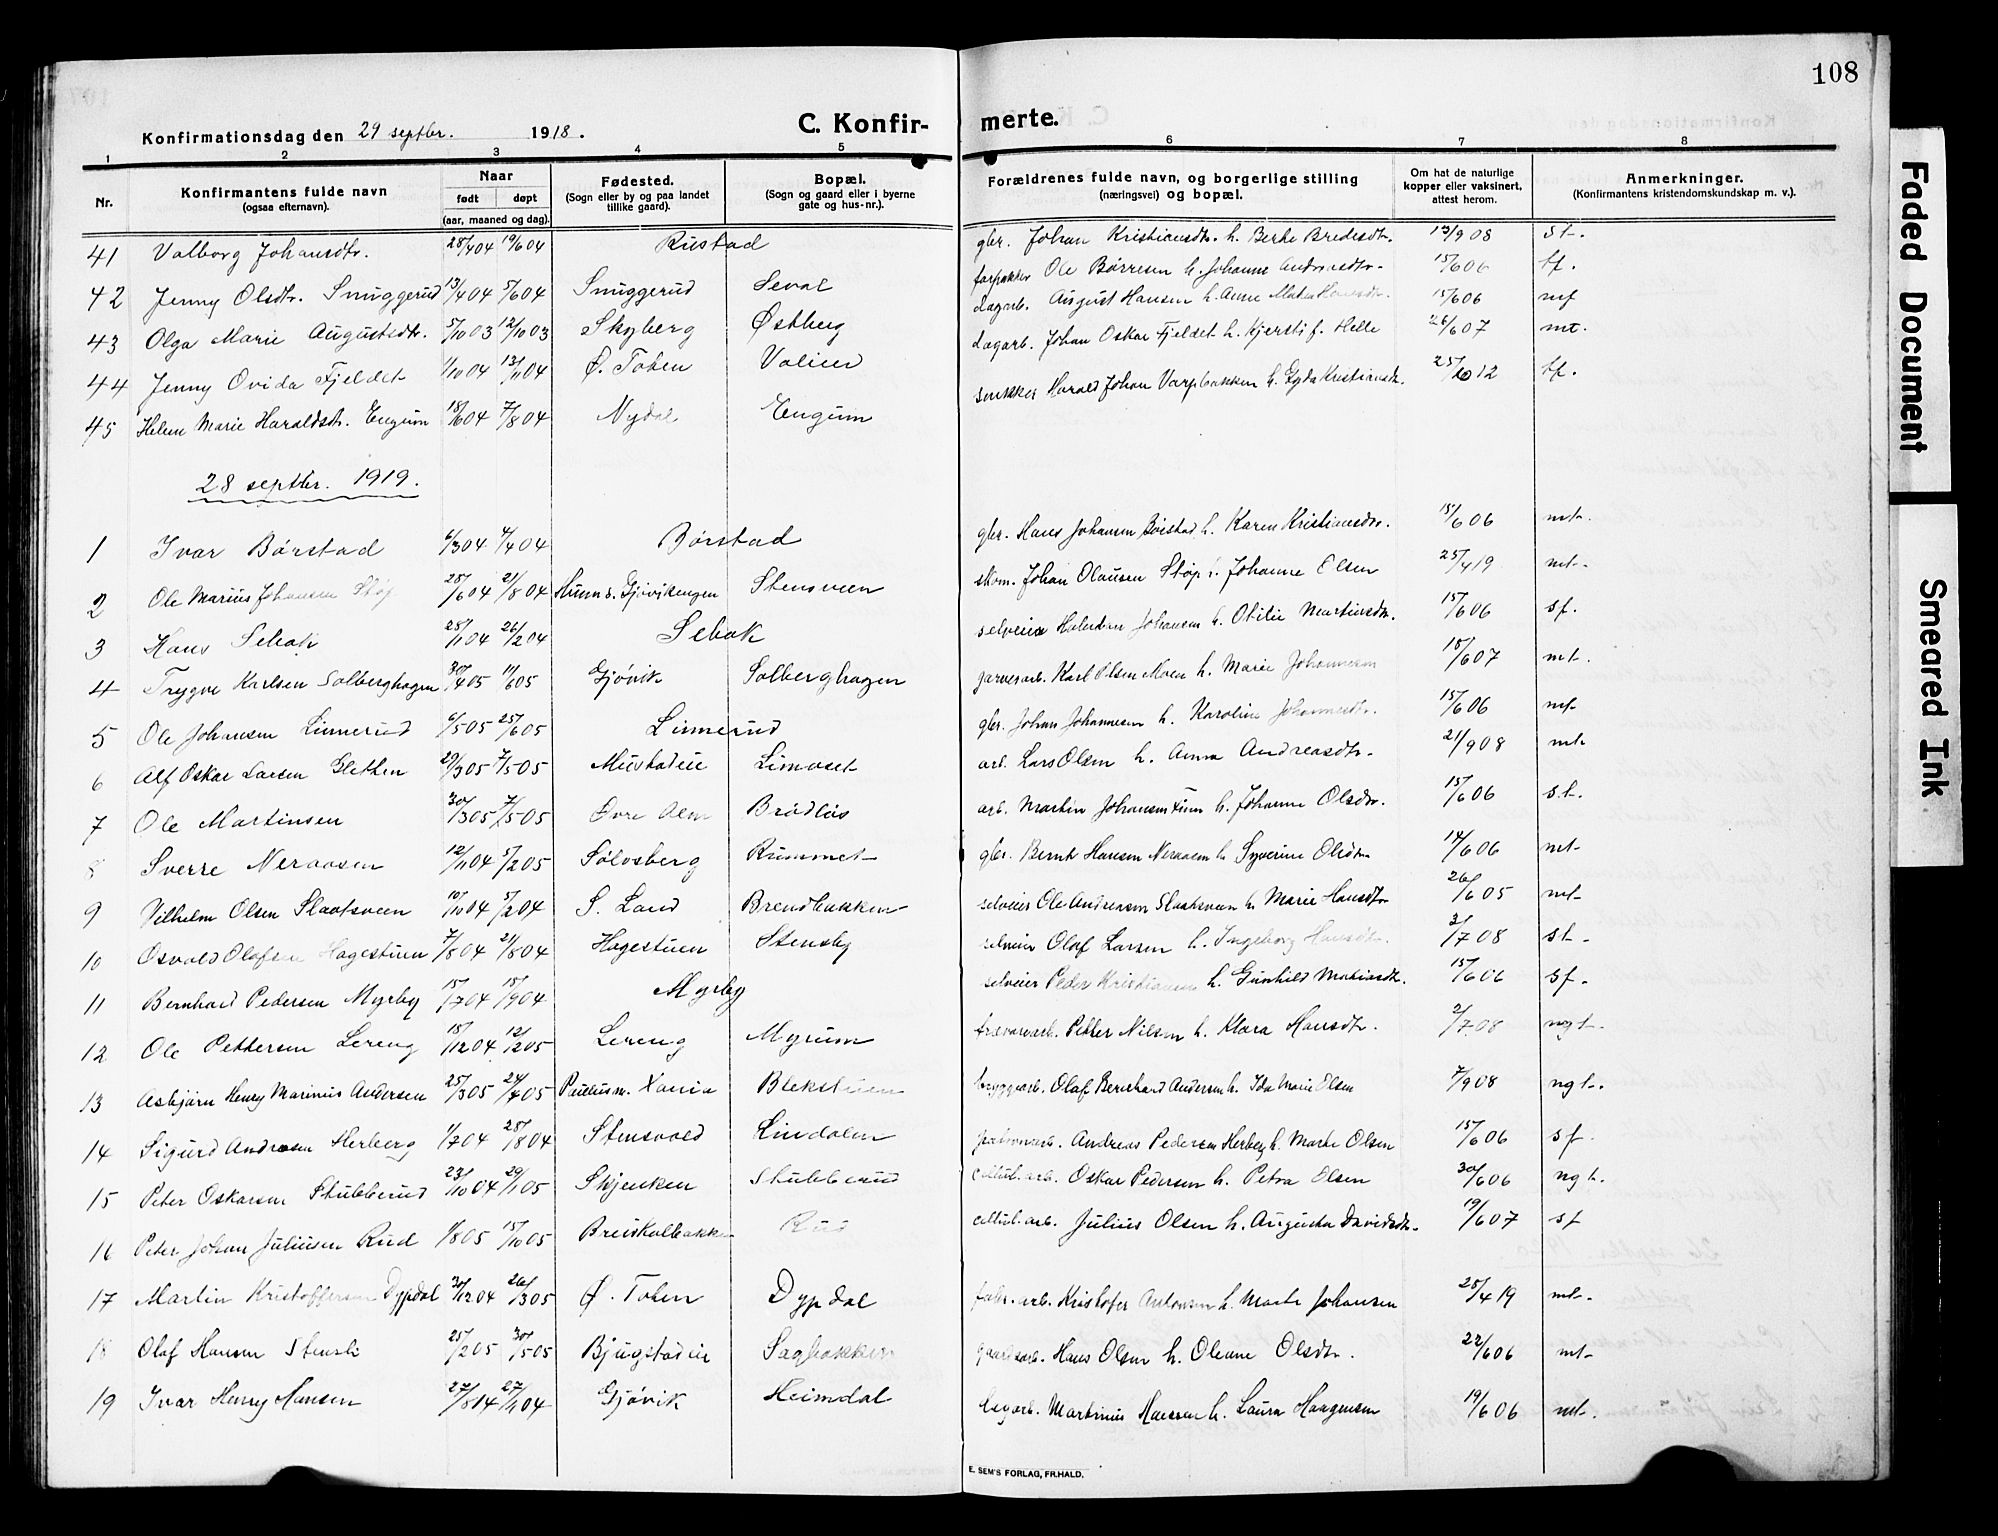 108
Konfirmationsdag den 29 septbr. 1918.
C. Konfir- merte.
1 2 3 4 5 6 7 8
Nr.
Konfirmantens fulde navn
(ogsaa efternavn).
Naar
født døpt
(aar, maaned og dag).
Fødested.
(Sogn eller by og paa landet
tillike gaard).
Bopæl.
(Sogn og gaard eller i byerne
gate og hus-nr.).
Forældrenes fulde navn, og borgerlige stilling
(næringsvei) og bopæl.
Om hat de naturlige
kopper eller vaksinert,
attest herom.
Anmerkninger.
(Konfirmantens kristendomskundskap m. v.).
41 Valborg Johansdtr. 28/4 04 19/6 04 Rustad gbr. Johan Kristiansdtr. h. Berte Bredesdtr. 13/9 08 st.
42 Jenny Olsdtr. Snuggerud 13/4 04 5/6 04 Snuggerud Seval forpakter Ole Børresen h. Johanne Andreasdtr. 15/6 06 tf.
43 Olga Marie Augustsdtr. 5/10 03 12/10 03 Skyberg Østberg dagarb. August Hansen h. Anne 15/6 06 mf
44 Jenny Ovida Fjeldet 1/10 04 13/11 04 Ø. Toten dagarb. Johan Oskar Fjeldet h. Kjersti f. Helle 26/6 07 mt.
45 Helene Marie Haraldsdtr. Engum 18/6 04 7/8 04 Nydal Engum snekker Harald Johan Varpbakken h. Gyda Kristiansdtr. 25/10 12 tf.
28 septbr. 1919.
1 Ivar Børstad 6/3 04 4/4 04 Børstad gbr. Hans Johansen Børstad h. Karen Kristiansdtr. 15/6 06 mt.
2 Ole Marius Johansen Støp 28/6 04 21/8 04 Hunns. Gjøvikengen Stensveen skom. Johan Olausen Støp h. Johanne Olsen 25/4 19 mt.
3 Hans Sebak 28/1 04 26/2 04 Sebak selveier Halvdan Johansen h. Otilie Martinsdtr. 15/6 06 sf.
4 Trygve Karlsen Solberghagen 30/4 05 11/6 05 Gjøvik Solberghagen garverarb. Karl Olsen Moen h. Marie Johannesen 15/6 07 mt.
5 Ole Johansen Linnerud 6/5 05 25/6 05 Linnerud gbr. Johan Johannesen h. Karoline Johannesdtr. 15/6 06 mt
6 Alf Oskar Larsen Sletten 29/3 05 7/5 05 Mustadeie Limoset arb. Lars Olsen h. Anna Andreasdtr. 21/9 08 mt
7 Ole Martinsen 30/3 05 7/5 05 Øvre Alm Brødløs arb. Martin Johansen h. Johanne Olsdtr. 15/6 06 s.t.
8 Sverre Neraasen 12/11 04 5/2 05 Sølvsberg Rummet gbr. Bernt Hansen Neraasen h. Syverine Olsdtr. 14/6 06 mt
9 Vilhelm Olsen Slaatsveen 10/10 04 5/2 04 S. Land Brendbakken selveier Ole Andreasen Slaatsveen h. Marie Hansdtr. 26/6 05 mt.
10 Osvald Olafsen Hagestuen 7/8 04 21/8 04 Hagestuen Stensby selveier Olaf Larsen h. Ingeborg Hansdtr. 3/7 08 st.
11 Bernhard Pedersen Myrby 15/7 04 15/9 04 Myrby selveier Peder Kristiansen h. Gunhild Matiasdtr. 15/6 06 sf.
12 Ole Pettersen Lereng 15/12 04 12/2 05 Lereng Myrum trævarearb. Petter Nilsen h. Klara Hansdtr. 2/7 08 ngt.
13 Asbjørn Henry Marinius Andersen 25/3 05 24/4 05 Paulusm. Xania Blekstuen bryggearb. Olaf Bernhard Andersen h. Ida Marie Olsen 7/9 08 ngt.
14 Sigurd Andreasen Herberg 1/7 04 28/8 04 Stensvold Lindalen Andreas Pedersen Herberg h. Marte Olsen 15/6 06 sf.
15 Peter Oskarsen Stubberud 23/10 04 29/1 05 Skjenken Stubberud cellul. arb. Oskar Pedersen h. Petra Olsen 30/6 06 ngt.
16 Peter Johan Juliusen Rud 1/8 05 15/10 05 Breiskalbakken Rud cellul. arb. Julius Olsen h. Augusta Davidsdtr. 19/6 07 sf
17 Martin Kristoffersen Dypdal 30/12 04 26/3 05 Ø. Toten Dypdal fabr. arb. Kristofer Antonsen h. Marte Johansen 25/4 19 mt.
18 Olaf Hansen Stensli 25/2 05 30/5 05 Bjugstadeie Sagbakken gaardsarb. Hans Olsen h. Oleane Olsdtr. 22/6 06 mt
19 Ivar Henry Hansen 27/8 14 27/11 04 Gjøvik Heimdal Martinius Hansen h. Laura Haagensen 19/6 06 mt.
E. SEM'S FORLAG, FR.HALD.
Faded Document
Smeared Ink